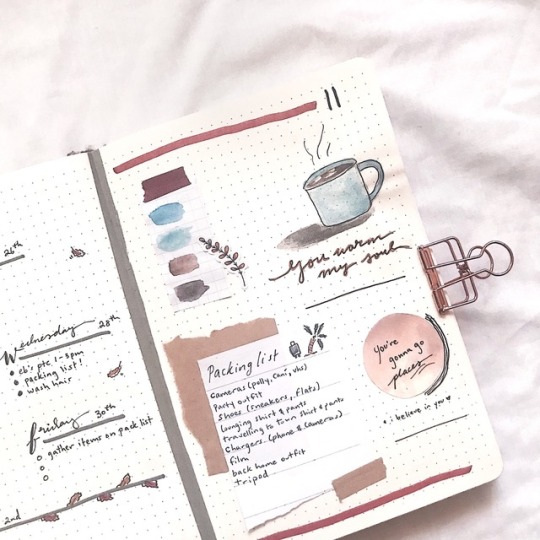 26th
Wednesday 28th
• cb's ptc 1-3pm
• packing list!
• wash hair
Friday 30th
gather items on pack list
2nd
11
You warm
my soul
Packing list
Cameras (polly, cani, vhs)
Party outfit
Shoes (sneakers, flats)
Lounging shirt & pants
travelling to town shirt & pants
Chargers (phone & cameras)
film
back home outfit
tripod
You're
gonna go
places
• i believe in you ♥